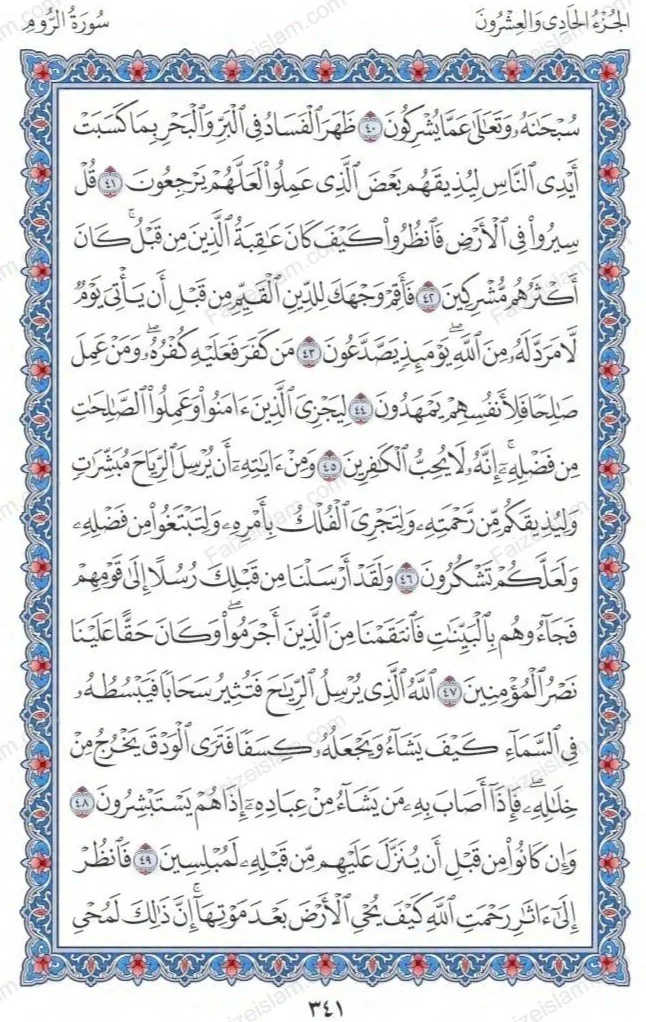 الجُزْءُ الحَادِى وَالعِشْرُونَ
سُورَةُ الرُّومِ
سُبْحَانَهُۥ وَتَعَالَىٰ عَمَّا يُشْرِكُونَ ٤٠ ظَهَرَ ٱلْفَسَادُ فِى ٱلْبَرِّ وَٱلْبَحْرِ بِمَا كَسَبَتْ
أَيْدِى ٱلنَّاسِ لِيُذِيقَهُم بَعْضَ ٱلَّذِى عَمِلُوا۟ لَعَلَّهُمْ يَرْجِعُونَ ٤١ قُلْ
سِيرُوا۟ فِى ٱلْأَرْضِ فَٱنظُرُوا۟ كَيْفَ كَانَ عَٰقِبَةُ ٱلَّذِينَ مِن قَبْلُ ۚ كَانَ
أَكْثَرُهُم مُّشْرِكِينَ ٤٢ فَأَقِمْ وَجْهَكَ لِلدِّينِ ٱلْقَيِّمِ مِن قَبْلِ أَن يَأْتِىَ يَوْمٌ
لَّا مَرَدَّ لَهُۥ مِنَ ٱللَّهِ ۖ يَوْمَئِذٍ يَصَّدَّعُونَ ٤٣ مَن كَفَرَ فَعَلَيْهِ كُفْرُهُۥ ۖ وَمَنْ عَمِلَ
صَٰلِحًا فَلِأَنفُسِهِمْ يَمْهَدُونَ ٤٤ لِيَجْزِىَ ٱلَّذِينَ ءَامَنُوا۟ وَعَمِلُوا۟ ٱلصَّٰلِحَٰتِ
مِن فَضْلِهِۦٓ ۚ إِنَّهُۥ لَا يُحِبُّ ٱلْكَٰفِرِينَ ٤٥ وَمِنْ ءَايَٰتِهِۦٓ أَن يُرْسِلَ ٱلرِّيَاحَ مُبَشِّرَٰتٍ
وَلِيُذِيقَكُم مِّن رَّحْمَتِهِۦ وَلِتَجْرِىَ ٱلْفُلْكُ بِأَمْرِهِۦ وَلِتَبْتَغُوا۟ مِن فَضْلِهِۦ
وَلَعَلَّكُمْ تَشْكُرُونَ ٤٦ وَلَقَدْ أَرْسَلْنَا مِن قَبْلِكَ رُسُلًا إِلَىٰ قَوْمِهِمْ
فَجَآءُوهُم بِٱلْبَيِّنَٰتِ فَٱنتَقَمْنَا مِنَ ٱلَّذِينَ أَجْرَمُوا۟ ۖ وَكَانَ حَقًّا عَلَيْنَا
نَصْرُ ٱلْمُؤْمِنِينَ ٤٧ ٱللَّهُ ٱلَّذِى يُرْسِلُ ٱلرِّيَٰحَ فَتُثِيرُ سَحَابًا فَيَبْسُطُهُۥ
فِى ٱلسَّمَآءِ كَيْفَ يَشَآءُ وَيَجْعَلُهُۥ كِسَفًا فَتَرَى ٱلْوَدْقَ يَخْرُجُ مِنْ
خِلَٰلِهِۦ ۖ فَإِذَآ أَصَابَ بِهِۦ مَن يَشَآءُ مِنْ عِبَادِهِۦٓ إِذَا هُمْ يَسْتَبْشِرُونَ ٤٨
وَإِن كَانُوا۟ مِن قَبْلِ أَن يُنَزَّلَ عَلَيْهِم مِّن قَبْلِهِۦ لَمُبْلِسِينَ ٤٩ فَٱنظُرْ
إِلَىٰٓ ءَاثَٰرِ رَحْمَتِ ٱللَّهِ كَيْفَ يُحْىِ ٱلْأَرْضَ بَعْدَ مَوْتِهَآ ۚ إِنَّ ذَٰلِكَ لَمُحْىِ
٣٤١
Faizeislam.com